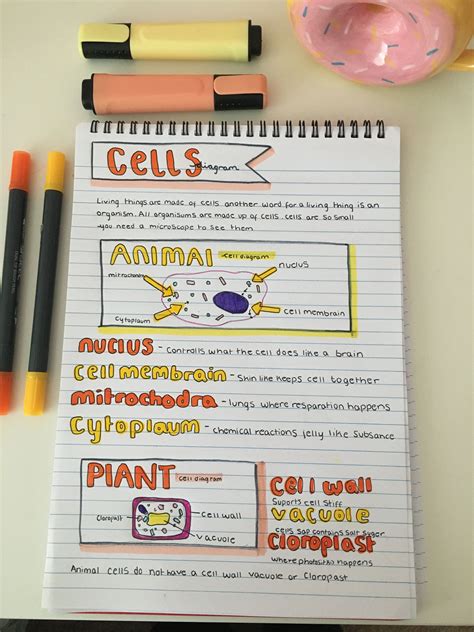 CELLS diagram
Living things are made of cells. another word for a living thing is an
organism. All organisums are made up of cells. cells are so small
you need a microscope to see them
ANIMAL cell diagram
nuclus
mitrochondra
cell membrain
cytoplaum
nuclus - controlls what the cell does like a brain
cell membrain - skin like keeps cell together
mitrochodra - lungs where resparation happens
cytoplaum - chemical reactions jelly like subsance
PLANT cell diagram
cloroplast
cell wall
vacuole
cell wall
suports cell stiff
vacuole
cells sap contains salt suger
cloroplast
where happens
Animal cells do not have a cell wall vacuole or cloropast